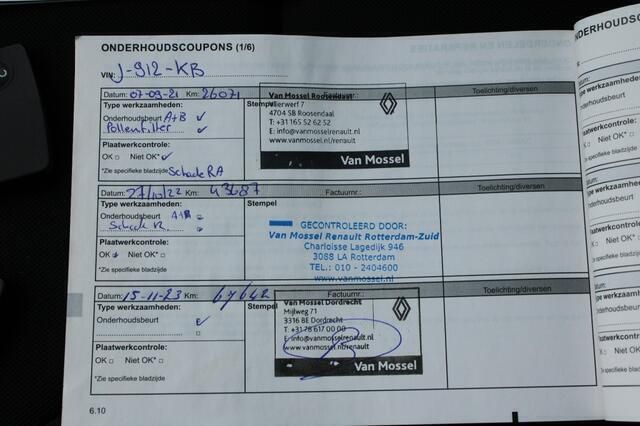 ONDERHOUDSCOUPONS (1/6)
VIN: J-912-KB
Datum: 07-09-21 Km: 26071 Factuurnr.: Toelichting/diversen
Type werkzaamheden: Stempel
Onderhoudsbeurt A+B
Pollenfilter
Plaatwerkcontrole:
OK Niet OK*
*Zie specifieke bladzijde Schade RA
Van Mossel Roosendaal
Vlierwerf 7
4704 SB Roosendaal
T: +31 165 52 62 52
E: info@vanmosselrenault.nl
www.vanmosselrenault.nl/renault
Van Mossel
Datum: 27/10/22 Km: 43687 Factuurnr.: Toelichting/diversen
Type werkzaamheden: Stempel
Onderhoudsbeurt A+B
Plaatwerkcontrole:
OK Niet OK*
*Zie specifieke bladzijde
GECONTROLEERD DOOR:
Van Mossel Renault Rotterdam-Zuid
Charloisse Lagedijk 946
3088 LA Rotterdam
TEL.: 010 - 2404600
www.vanmossel.nl
Datum: 15-11-23 Km: 67642 Factuurnr.: Toelichting/diversen
Type werkzaamheden: Stempel
Onderhoudsbeurt
Plaatwerkcontrole:
OK Niet OK*
*Zie specifieke bladzijde
Van Mossel Dordrecht
Mijlweg 71
3316 BE Dordrecht
T: +31 78 617 00 00
E: info@vanmosselrenault.nl
www.vanmossel.nl/renault
Van Mossel
6.10
ONDERHOUDSC
VIN:
Datum:
Type werkzaamhe
Onderhoudsbeurt
Plaatwerkcontrole
OK Niet OK*
*Zie specifieke bladz
Datum:
Type werkzaam
Onderhoudsbeurt
Plaatwerkcontrole
OK Niet OK*
*Zie specifieke
Datum:
Type werkzaam
Onderhoudsbeu
Plaatwerkcontr
OK Niet O
*Zie specifieke bl